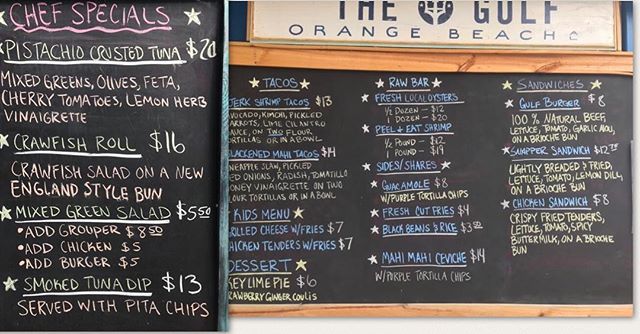 CHEF SPECIALS
PISTACHIO CRUSTED TUNA $20
MIXED GREENS, OLIVES, FETA,
CHERRY TOMATOES, LEMON HERB
VINAIGRETTE
CRAWFISH ROLL $16
CRAWFISH SALAD ON A NEW
ENGLAND STYLE BUN
MIXED GREEN SALAD $5.50
• ADD GROUPER $8.50
• ADD CHICKEN $5
• ADD BURGER $5
SMOKED TUNA DIP $13
SERVED WITH PITA CHIPS
THE GULF
ORANGE BEACH
TACOS
JERK SHRIMP TACOS $13
AVOCADO, KIMCHI, PICKLED
CARROTS, LIME CILANTRO
SAUCE, ON TWO FLOUR
TORTILLAS OR IN A BOWL
BLACKENED MAHI TACOS $14
PINEAPPLE SLAW, PICKLED
RED ONIONS, RADISH, TOMATILLO
HONEY VINAIGRETTE ON TWO
FLOUR TORTILLAS OR IN A BOWL
KIDS MENU
GRILLED CHEESE W/FRIES $7
CHICKEN TENDERS W/FRIES $7
DESSERT
KEY LIME PIE $6
STRAWBERRY GINGER COULIS
RAW BAR
FRESH LOCAL OYSTERS
1/2 DOZEN - $12
1 DOZEN - $20
PEEL & EAT SHRIMP
1/2 POUND - $12
1 POUND - $19
SIDES/SHARES
GUACAMOLE $8
W/PURPLE TORTILLA CHIPS
FRESH CUT FRIES $4
BLACK BEANS & RICE $3.50
MAHI MAHI CEVICHE $14
W/PURPLE TORTILLA CHIPS
SANDWICHES
GULF BURGER $8
100% NATURAL BEEF,
LETTUCE, TOMATO, GARLIC AIOLI,
ON A BRIOCHE BUN
SNAPPER SANDWICH
LIGHTLY BREADED & FRIED,
LETTUCE, TOMATO, LEMON DILL,
ON A BRIOCHE BUN
CHICKEN SANDWICH $8
CRISPY FRIED TENDERS,
LETTUCE, TOMATO, SPICY
BUTTERMILK, ON A BRIOCHE
BUN